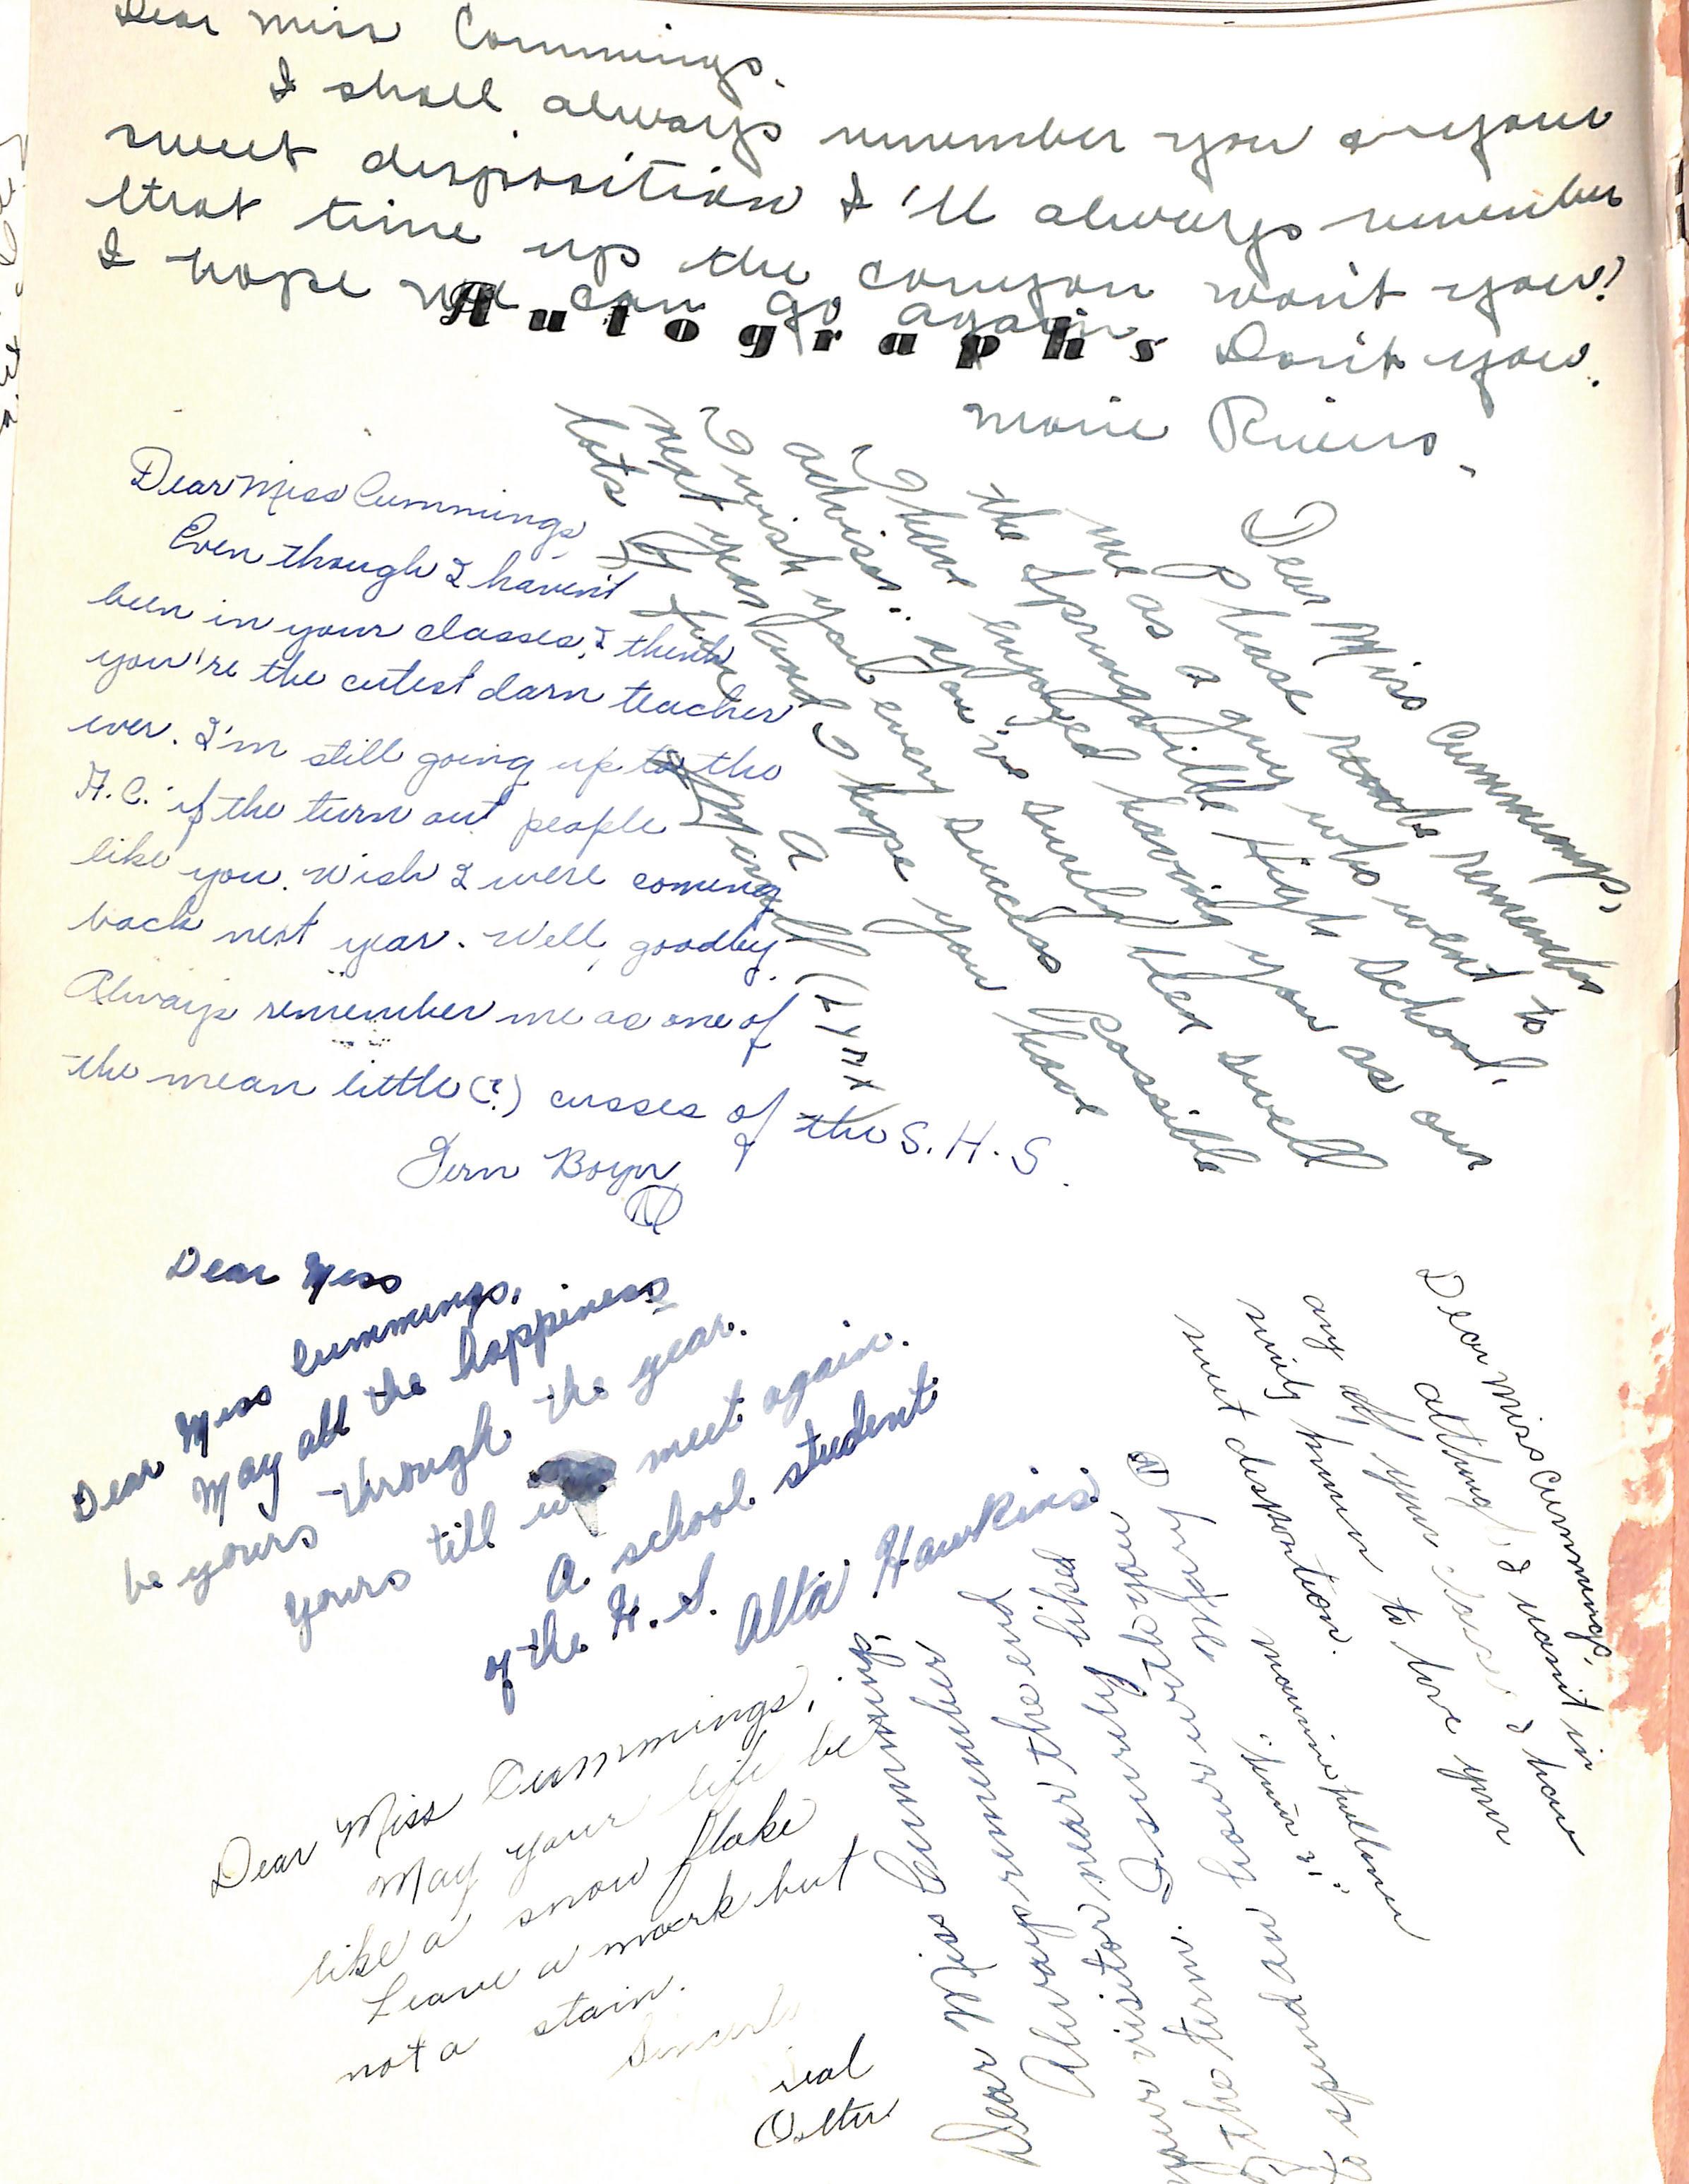 Dear Miss Cummings.
I shall always remember you or your
sweet disposition I'll always remember
that time up the conyon won't you?
I hope we can go again Don't you.
Marie Rivers.
Autographs
Dear Miss Cummings,
Even though I haven't
been in your classes, I think
you're the cutest darn teacher
ever. I'm still going up to the
A.C. if the turn out people
like you. Wish I were coming
back next year. Well, goodby.
Always remember me as one of
the mean little (?) cusses of the S.H.S.
Fern Boyer
Dear Miss Cummings,
Please remember
me as a guy who went to
the Springville High School.
I have enjoyed having you as our
advisor. You've surely been swell
I wish you every success Possible
next year and I hope you have
lots of fun
A
(Lynx)
Dear Miss
Cummings,
Dear Miss
May all the happiness
be yours through the year.
Yours till we meet again.
A school student
of the H.S.
Alta Hawkins
Dear Miss Cummings,
May your life be
like a snow flake
Leave a mark but
not a stain.
Sincerly
Dear Miss Cummings
Always remember the end
Always remember
year visitor near the end
of the term. I surely liked
to spend an hour with you
Dear Miss Cummings,
Althoug I wasn't in
any of your classes I have
surely known to love your
sweet disposition.
Maurine Fullmer